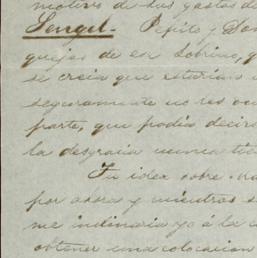 motivo de sus gastos de
Sengel. Pepito y Don
quejas de ese sobrino, q
se creia que estarian
seguramente no les
parte, que podia decirs
la desgracia nunca
Tu idea sobre
por ahora y mientras s
me inclinaria yo á la c
obtener una colocacion